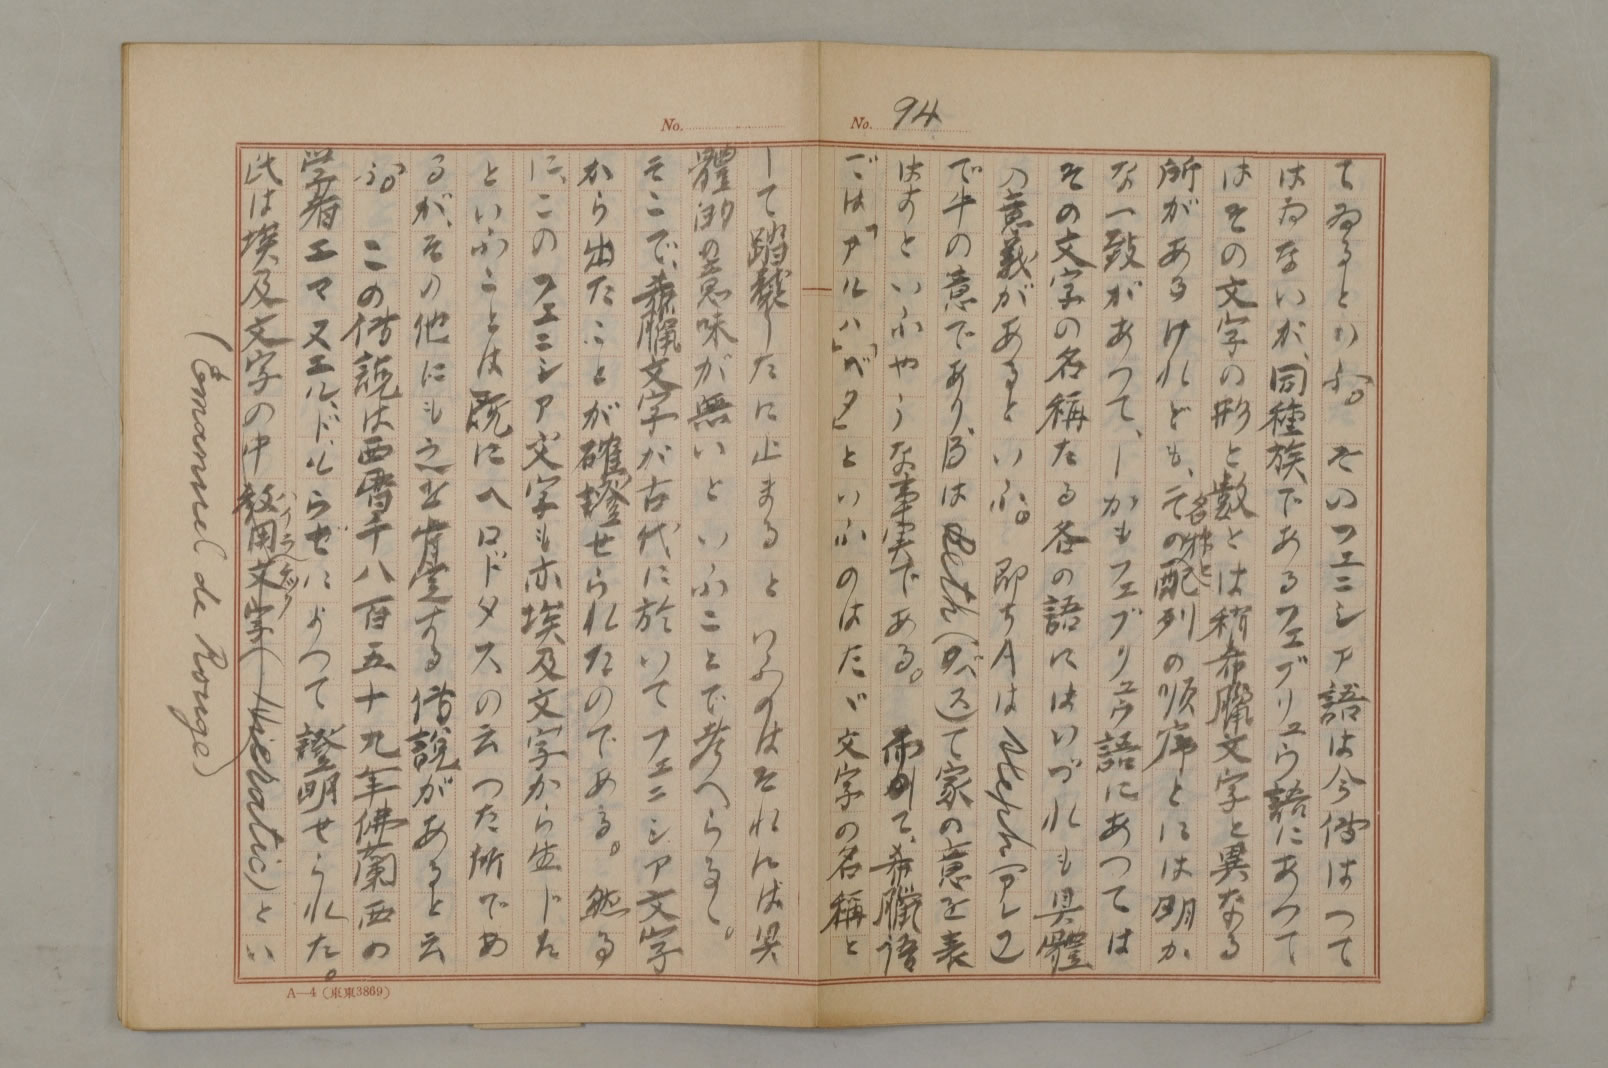 No. 94
てゐるといふ。そのフェニシア語は今傳はつて
はゐないが、同種族であるフェブリュウ語にあつて
はその文字の形と數とは稍希臘文字と異なる
所があるけれども、その名稱と配列の順序とには明か
な一致があつて、しかもフェブリュウ語にあつては
その文字の名稱たる各の語にはいづれも具體
の意義があるといふ。即ちAは Aleph(アレフ)
で牛の意であり、Bは Beth(ベス)で家の意を表
はすといふやうな事実である。而して、希臘語
では「アルハ」「ベタ」といふのはたゞ文字の名稱と
して踏襲したに止まるといふのはそれには具
體的意味が無いといふことで考へらるゝ。
そこで、希臘文字が古代に於いてフェニシア文字
から出たことが確證せられたのである。然る
に、このフェニシア文字も亦埃及文字から生じた
といふことは既にヘロドタスの云つた所であ
るが、その他にも之を肯定する傳説があると云
ふ。この傳説は西暦千八百五十九年佛蘭西の
学者エマヌエル、ド、ルらぜによつて證明せられた。
氏は埃及文字の中教用文字(Hieratic)とい
ハイラチック
(Emannel de Rouge)
No.
A—4(東東3869)